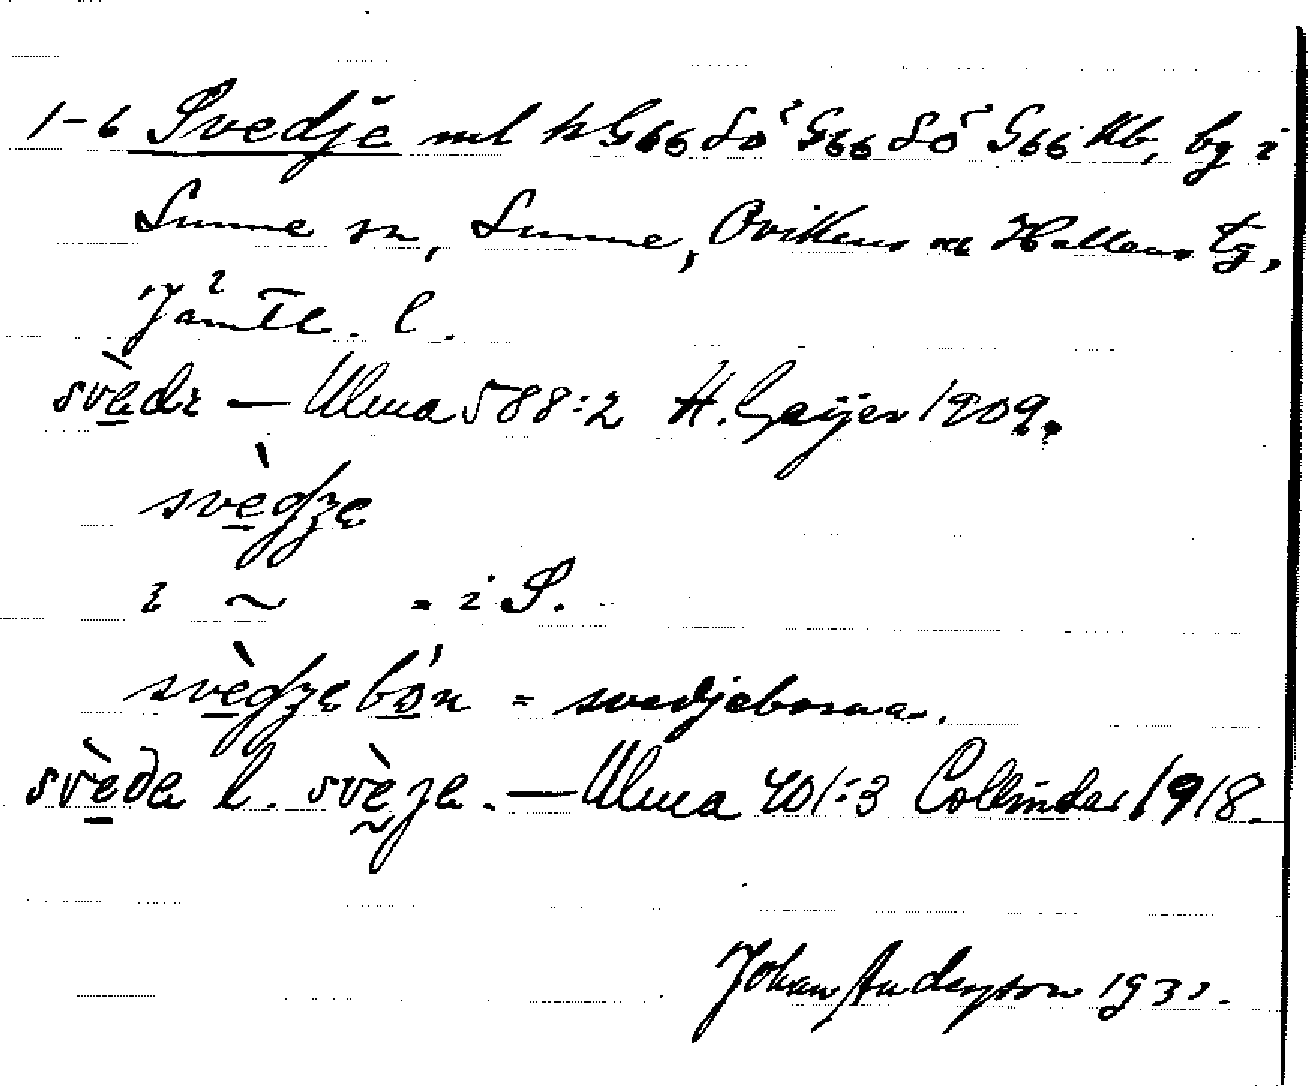 1-6 Svedje ml h G66 SÖ G66 SÖ G66 Kb, by i
Sunne sn, Sunne, Ovikens o Hallens tg,
Jämtl. l.
svèdɩ — Ulma 588:2 H. Geijer 1909.
svèdʒe
i ~ = i S.
svèdʒebón = svedjeborna.
l. — Ulma 401:3 Collinder 1918.
Johan Anderson